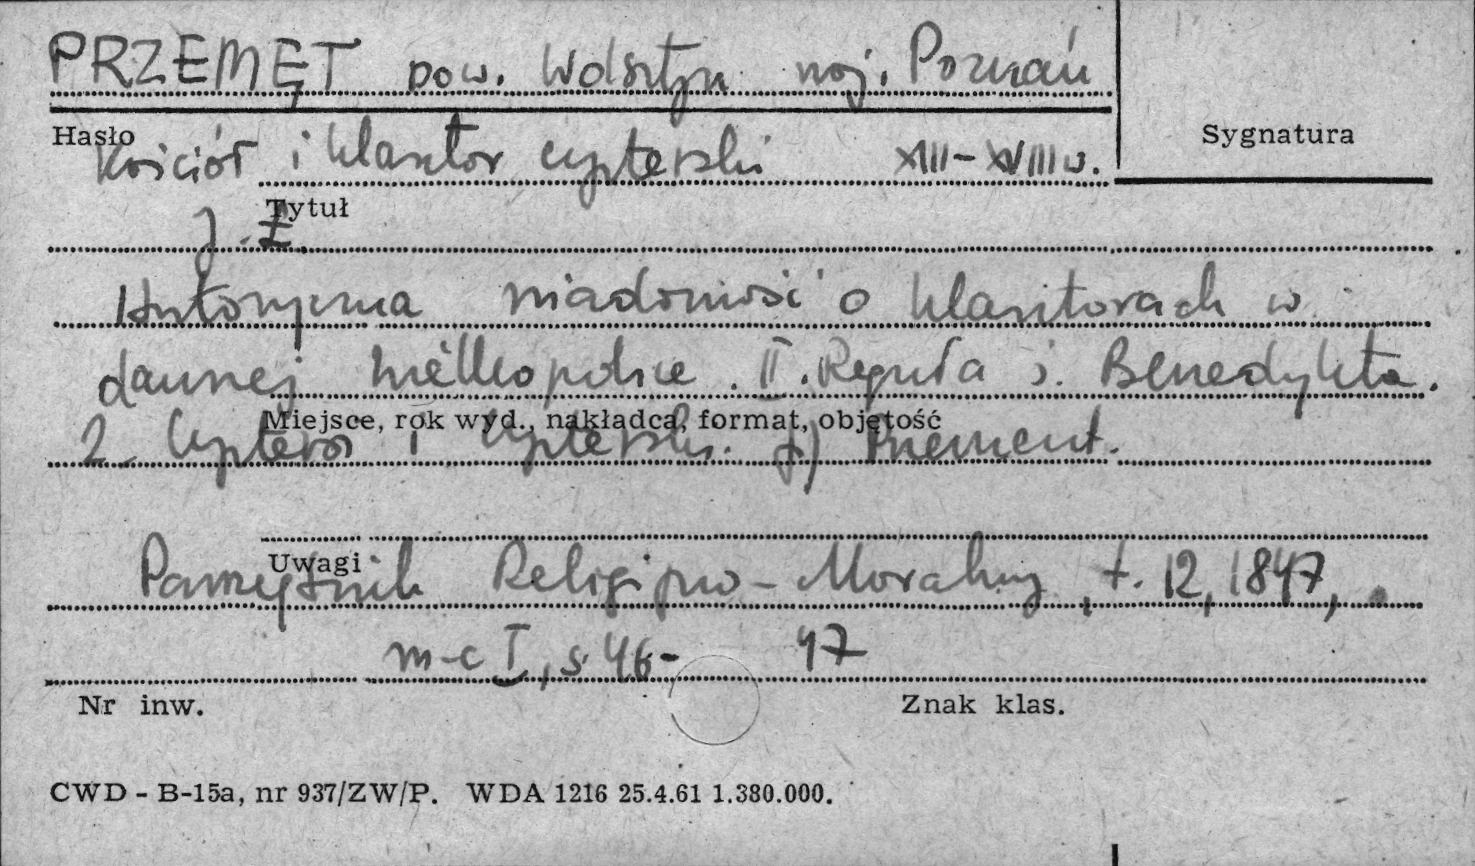 PRZEMĘT pow. Wolsztyn woj. Poznań
Hasło
Sygnatura
Kościół i klasztor cysterski XIII-XVIII w.
Tytuł
J. Ł.
Historyczna wiadomość o klasztorach w
dawnej Wielkopolsce. II. Reguła ś. Benedykta.
Miejsce, rok wyd., nakładca, format, objętość
2. Cystersi i Cysterski. f) Przement.
Uwagi
Pamiętnik Religijno-Moralny, t. 12, 1847,
m-c I, s. 46- 47
Nr inw.
Znak klas.
CWD - B-15a, nr 937/ZW/P. WDA 1216 25.4.61 1.380.000.